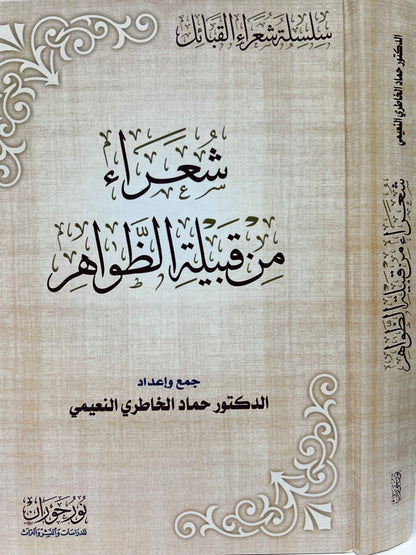 سلسلة شعراء القبائل
شُعَرَاء
مِنْ قَبِيلَةِ الظَّوَاهِر
جمع وإعداد
الدكتور حماد الخاطري النعيمي
نور حوران
للدراسات والنشر والتراث
الدكتور حماد الخاطري النعيمي
شُعَرَاء مِنْ قَبِيلَةِ الظَّوَاهِر
نور حوران